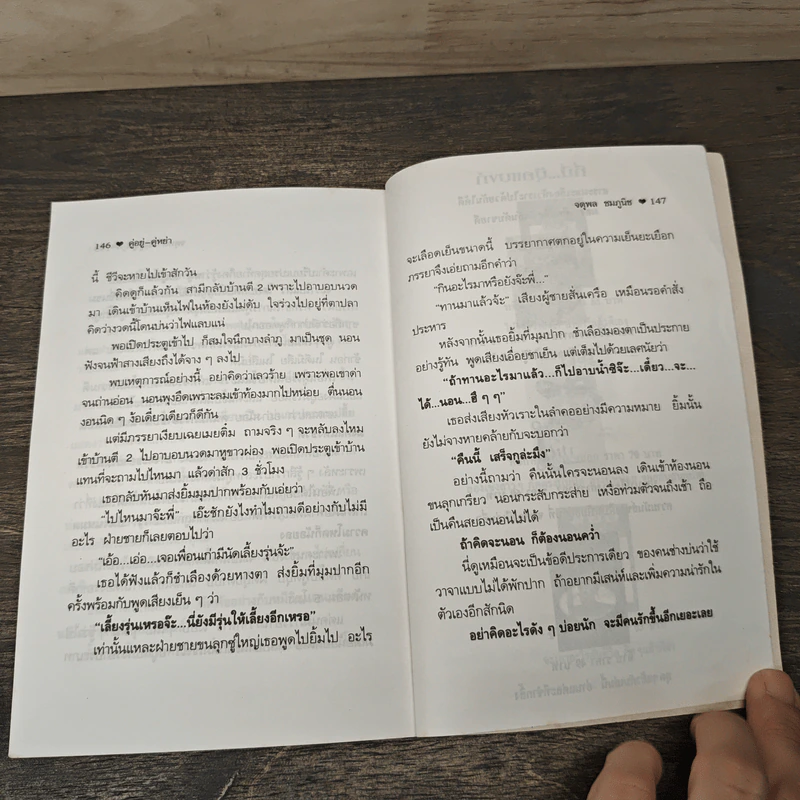 146 ❤ คู่อยู่-คู่หย่า
นี้ ชีวีจะหายไปเข้าสักวัน
คิดดูก็แล้วกัน สามีกลับบ้านตี 2 เพราะไปอาบอบนวด
มา เดินเข้าบ้านเห็นไฟในห้องยังไม่ดับ ใจร่วงไปอยู่ที่ตาปลา
คิดว่างวดนี้โดนบ่นว่าไฟแลบแน่
พอเปิดประตูเข้าไป ก็สมใจนึกบางลำภู มาเป็นชุด นอน
ฟังจนฟ้าสางเสียงถึงได้จาง ๆ ลงไป
พบเหตุการณ์อย่างนี้ อย่าคิดว่าเลวร้าย เพราะพอเขาด่า
จนถ่านอ่อน นอนพุงอืดเพราะลมเข้าท้องมากไปหน่อย ตื่นนอน
งอนนิด ๆ ง้อเดี๋ยวเดียวก็ดีกัน
แต่มีภรรยาเงียบเฉยเมยติ๋ม ถามจริง ๆ จะหลับลงไหม
เข้าบ้านตี 2 ไปอาบอบนวดมาหูขาวผ่อง พอเปิดประตูเข้าบ้าน
แทนที่จะถามไปไหนมา แล้วด่าสัก 3 ชั่วโมง
เธอกลับหันมาส่งยิ้มมุมปากพร้อมกับเอ่ยว่า
“ไปไหนมาจ๊ะพี่” เอ๊ะชักยังไงทำไมถามดีอย่างกับไม่มี
อะไร ฝ่ายชายก็เลยตอบไปว่า
“เอ้อ...เอ่อ...เจอเพื่อนเก่ามีนัดเลี้ยงรุ่นจ้ะ”
เธอได้ฟังแล้วก็ชำเลืองด้วยหางตา ส่งยิ้มที่มุมปากอีก
ครั้งพร้อมกับพูดเสียงเย็น ๆ ว่า
“เลี้ยงรุ่นเหรอจ๊ะ...นี่ยังมีรุ่นให้เลี้ยงอีกเหรอ”
เท่านั้นแหละฝ่ายชายขนลุกซู่ใหญ่เธอพูดไปยิ้มไป อะไร
จตุพล ชมภูนิช ❤ 147
จะเลือดเย็นขนาดนี้ บรรยากาศตกอยู่ในความเย็นยะเยือก
ภรรยาจึงเอ่ยถามอีกคำว่า
“กินอะไรมาหรือยังจ๊ะพี่...”
“ทานมาแล้วจ้ะ” เสียงผู้ชายสั่นเครือ เหมือนรอคำสั่ง
ประหาร
หลังจากนั้นเธอยิ้มที่มุมปาก ชำเลืองมองตาเป็นประกาย
อย่างรู้ทัน พูดเสียงเอื่อยชาเย็น แต่เต็มไปด้วยเลศนัยว่า
“ถ้าทานอะไรมาแล้ว...ก็ไปอาบน้ำซิจ๊ะ...เดี๋ยว...จะ...
ได้...นอน...ฮึ ๆ ๆ”
เธอส่งเสียงหัวเราะในลำคออย่างมีความหมาย ยิ้มนั้น
ยังไม่จางหายคล้ายกับจะบอกว่า
“คืนนี้ เสร็จกูล่ะมึง”
อย่างนี้ถามว่า คืนนั้นใครจะนอนลง เดินเข้าห้องนอน
ขนลุกเกรียว นอนกระสับกระส่าย เหงื่อท่วมตัวจนถึงเช้า ถือ
เป็นคืนสยองนอนไม่ได้
ถ้าคิดจะนอน ก็ต้องนอนคว่ำ
นี่ดูเหมือนจะเป็นข้อดีประการเดียว ของคนช่างบ่นว่าใช้
วาจาแบบไม่ได้พักปาก ถ้าอยากมีเสน่ห์และเพิ่มความน่ารักใน
ตัวเองอีกสักนิด
อย่าคิดอะไรดัง ๆ บ่อยนัก จะมีคนรักขึ้นอีกเยอะเลย